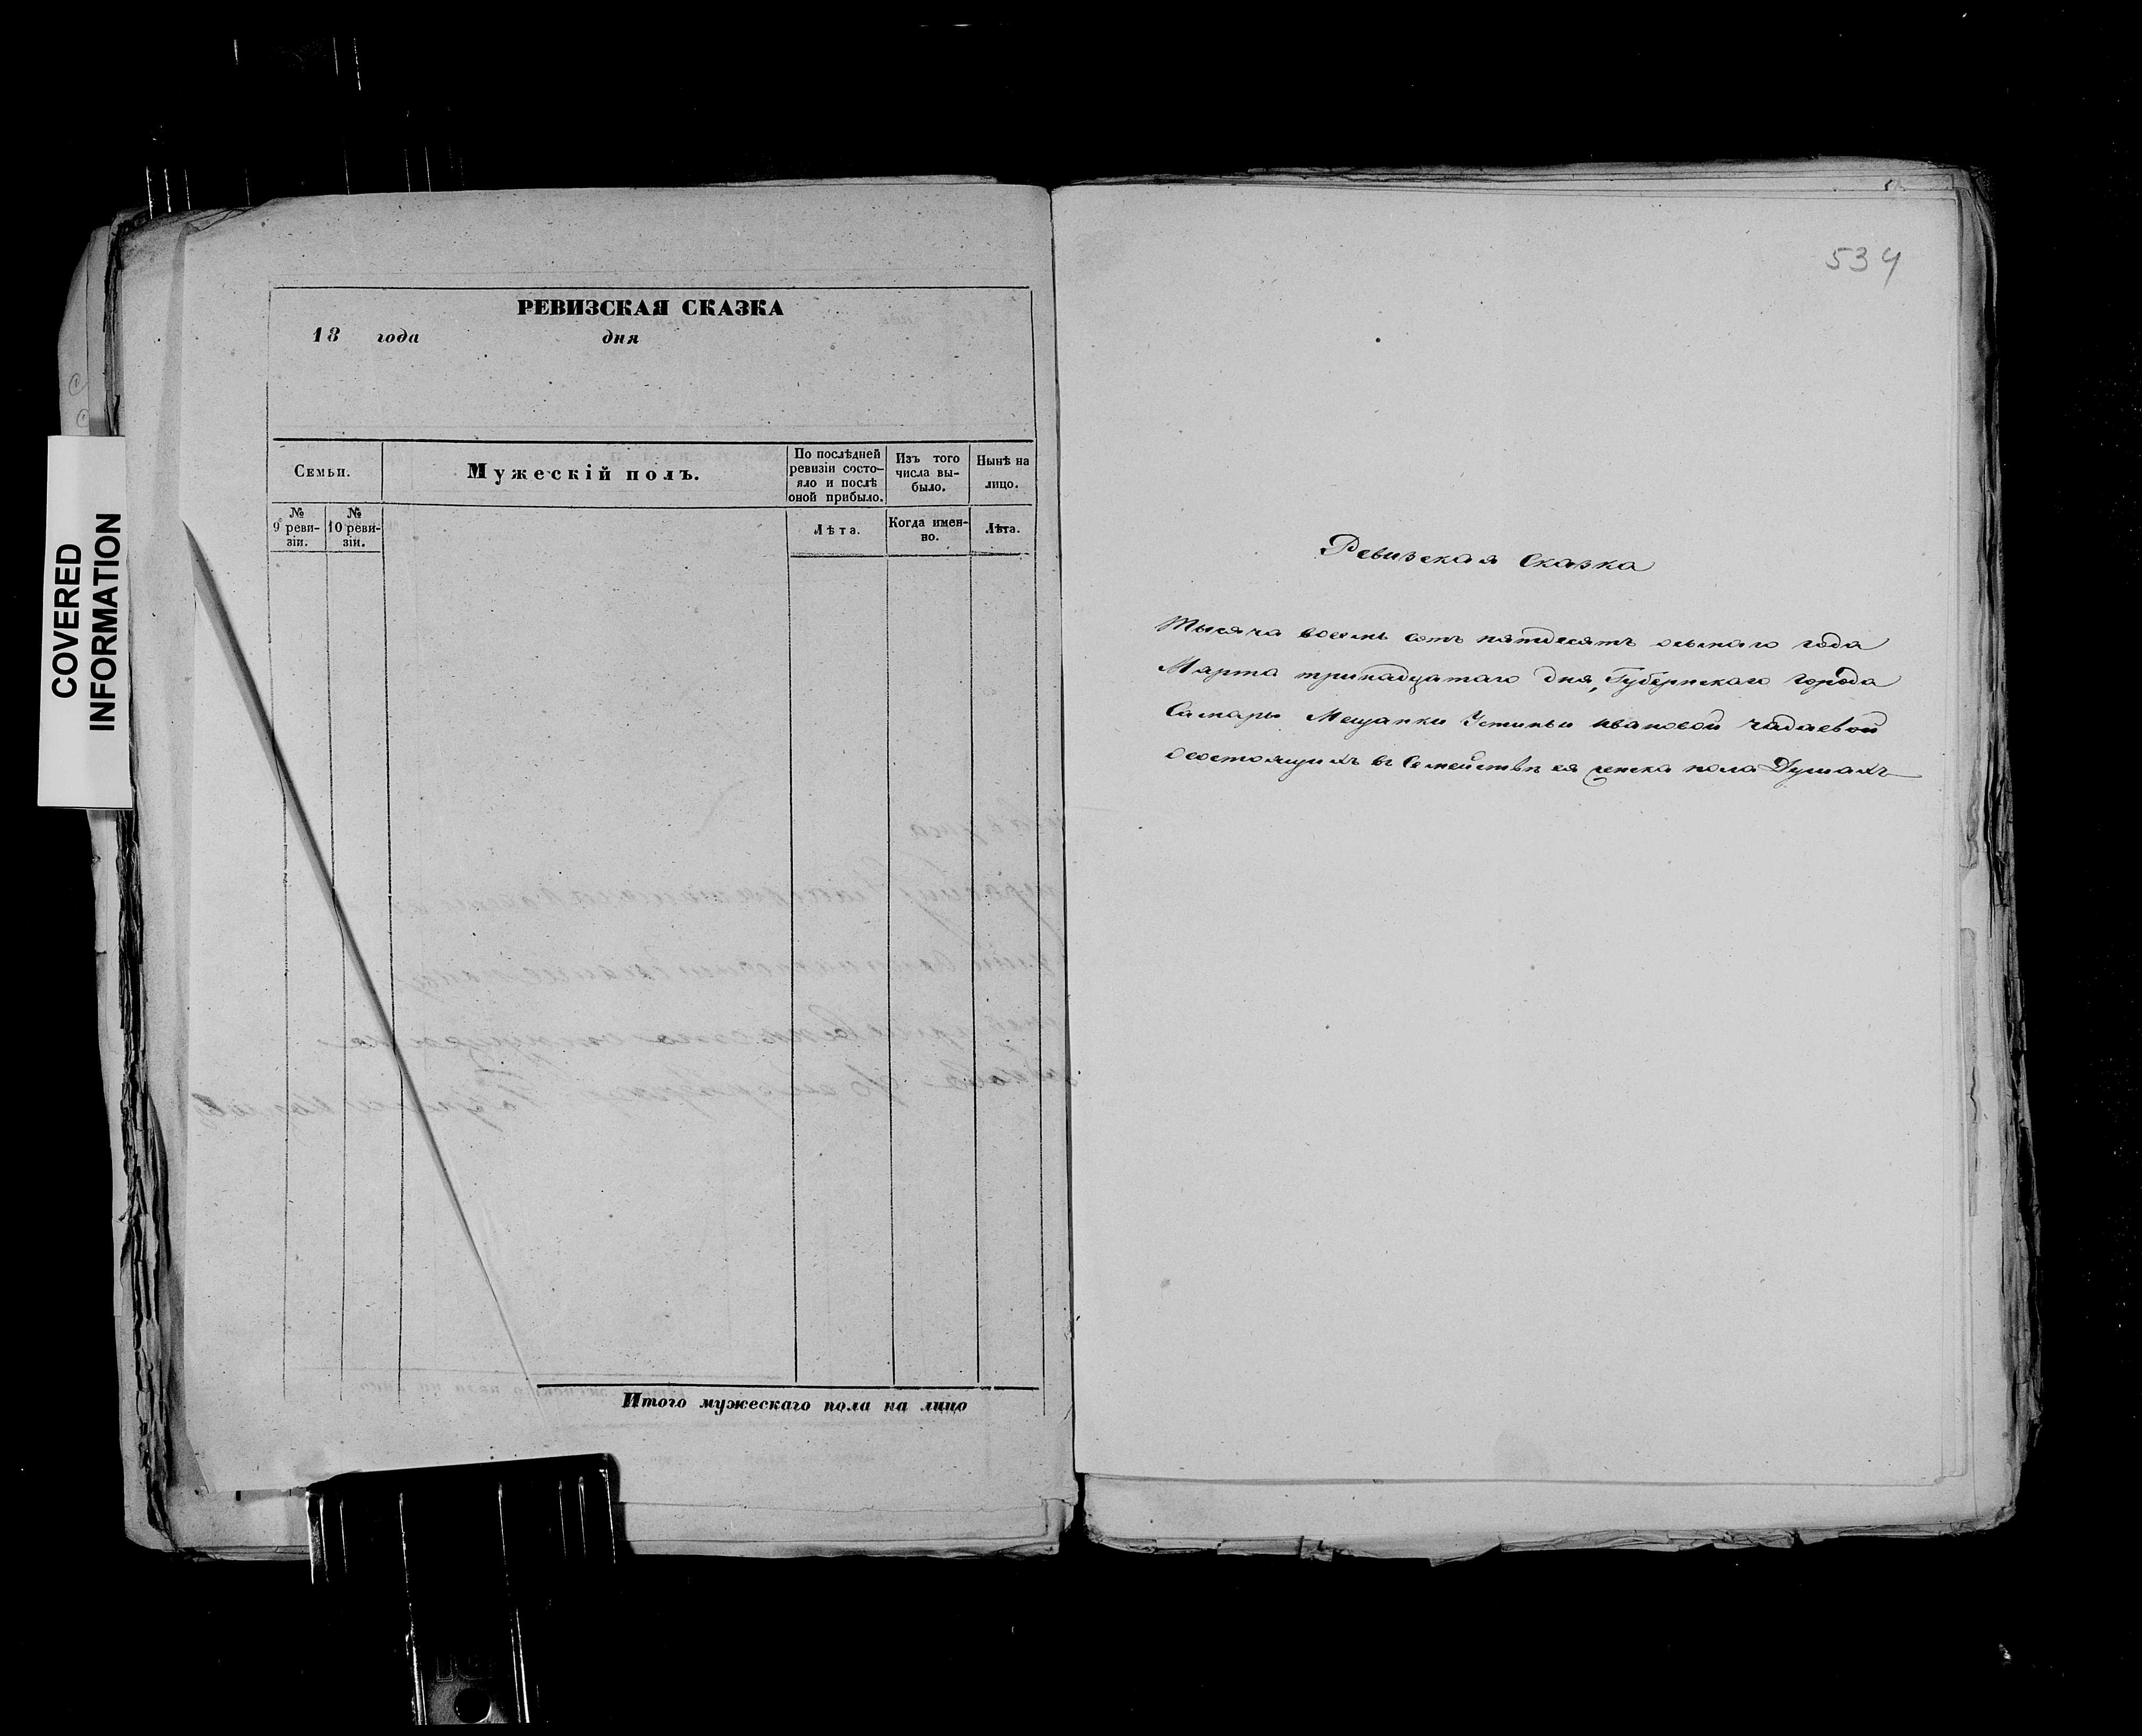 COVERED
INFORMATION
РЕВИЗСКАЯ СКАЗКА
18 года дня
Семьи.
Мужескій полъ.
По послѣдней
ревизіи состо-
яло и послѣ
оной прибыло.
Изъ того
числа вы-
было.
Нынѣ на
лицо.
№
9 реви-
зіи.
№
10 реви-
зіи.
Лѣта.
Когда имен-
но.
Лѣта.
Итого мужескаго пола на лицо
534
Ревизская Сказка
Тысяча восемь сотъ пятдесятъ осьмаго года
Марта тринадцатаго дня, Губернскаго города
Самары Мещанки Устиньи Ивановой Чадаевой
осостоящихъ въ Семействѣ ея женска пола Душахъ